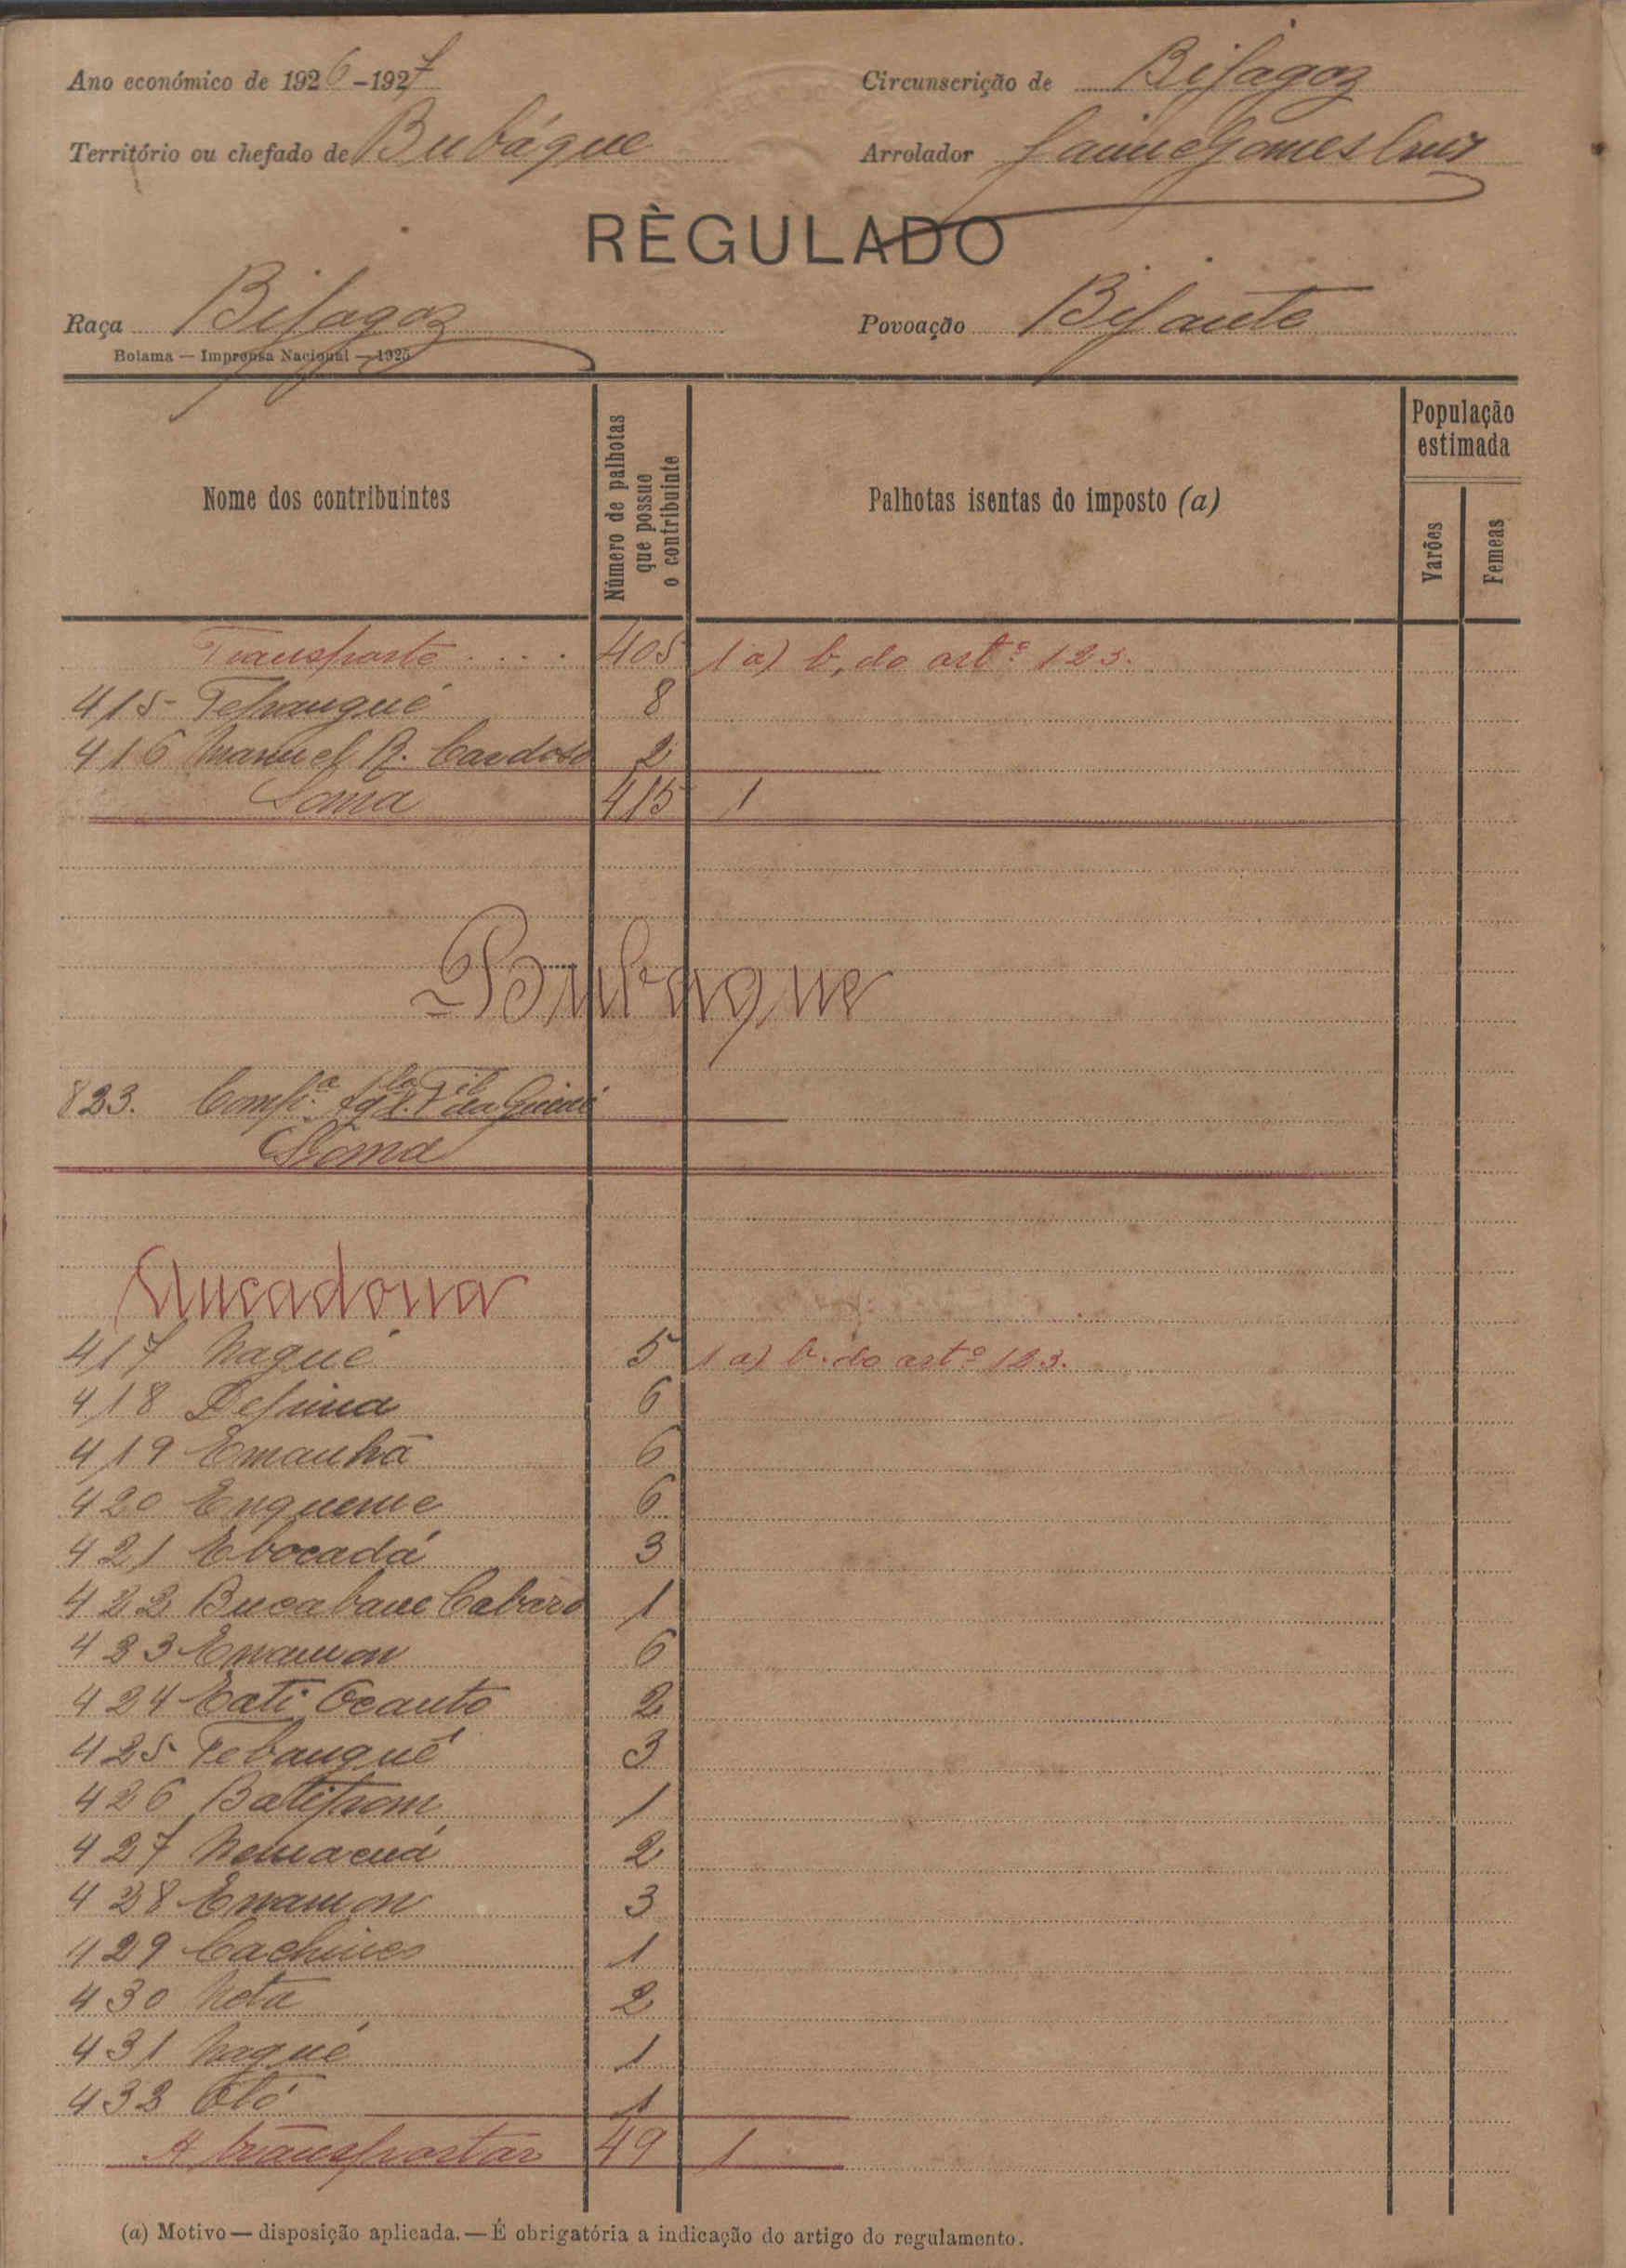 Ano económico de 1926-1927
Circunscrição de Bijagoz
Território ou chefado de Bubáque
Arrolador Jaime Gomes Cruz
RÈGULADO
Raça Bijagoz
Povoação Bijante
Bolama — Imprensa Nacional — 1925
Nome dos contribuintes
Número de palhotas que possue o contribuinte
Palhotas isentas do imposto (a)
População estimada
Varões
Femeas
Transporte . . . . 405 1 a) b, do artº 123.
415 Tepangué 8
416 Manuel R. Cardoso 2
Soma 415 1
Bubaque
823. Compª da Guiné
Soma
Ancadona
417 Nagué 5 1 a) b. do artº 123.
418 6
419 Emanhã 6
420 Enqueme 6
421 Ebocadá 3
422 Bucabane Cabaro 1
423 Enamon 6
424 Eati Ocanto 2
425 Tebanguê 3
426 Batipom 1
427 Nemacuá 2
428 Enamon 3
429 Cachines 1
430 Neta 2
431 Nagué 1
432 Otó 1
A transportar 49 1
(a) Motivo — disposição aplicada. — É obrigatória a indicação do artigo do regulamento.